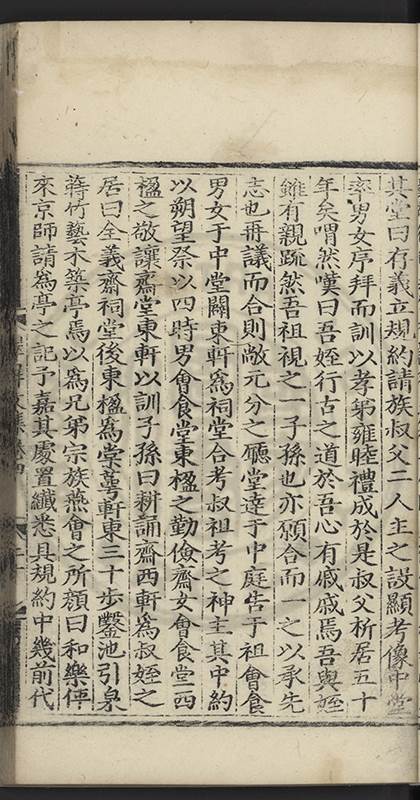 其堂曰存義立規約請族叔父二人主之設顯考像中堂
率男女序拜而訓以孝弟雍睦禮成於是叔父析居五十
年矣喟然嘆曰吾姪行古之道於吾心有戚戚焉吾與姪
雖有親疏然吾祖視之一子孫也亦願合而一之以承先
志也毋議而合則敞元分之廳堂達于中庭告于祖會食
男女于中堂闢東軒為祠堂合考叔祖考之神主其中約
以朔望祭以四時男會食堂東楹之勤儉齋女會食堂西
楹之敬讓齋堂東軒以訓子孫曰耕誦齋西軒為叔姪之
居曰全義齋祠堂後東楹為棠萼軒東三十步鑿池引泉
蒔竹藝木築亭焉以為兄弟宗族燕會之所顏曰和樂俾
來京師請為亭之記予嘉其處置纖悉具規約中幾前代